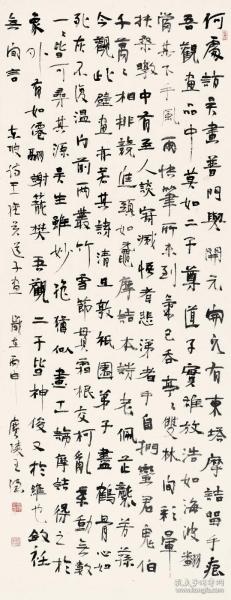 何處訪吳畫普門與開元開元有東塔摩詰留手痕
吾觀畫品中莫如二子尊道子實雄放浩如海波翻
當其下手風雨快筆所未到氣已吞亭亭雙林間彩暈
扶桑暾中有至人談寂滅悟者悲涕者手自捫蠻君鬼伯
千萬萬相排競進頭如黿摩詰本詩老佩芷襲芳蓀
今觀此壁畫亦若其詩清且敦祇園弟子盡鶴骨心如
死灰不復溫門前兩叢竹雪節貫霜根交柯亂葉動無數
一一皆可尋其源吳生雖妙絕猶似畫工論摩詰得之於
象外有如僊翮謝籠樊吾觀二子皆神俊又於維也斂衽
無間言 東坡詩王維吳道子畫 歲在丙申 廣陵王